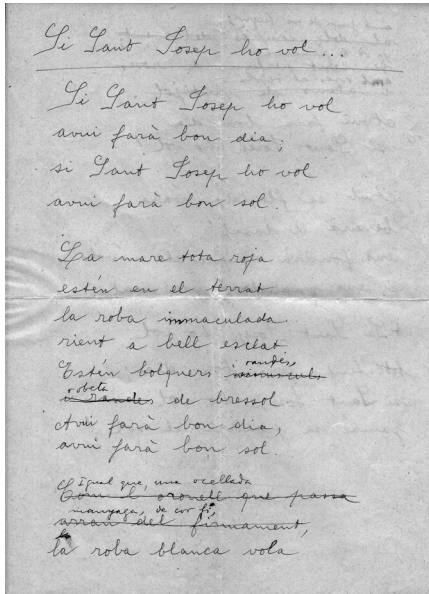 Si Sant Josep ho vol...
Si Sant Josep ho vol
avui farà bon dia;
si Sant Josep ho vol
avui farà bon sol.
La mare tota roja
estén en el terrat
la roba immaculada
rient a bell esclat
randes,
Estén bolquers i
robeta
i randes de bressol.
Avui farà bon dia,
avui farà bon sol.
Igual que, una ocellada
Com l'oronell que passa
manyaga, de cor fi,
arran del firmament,
la roba blanca vola